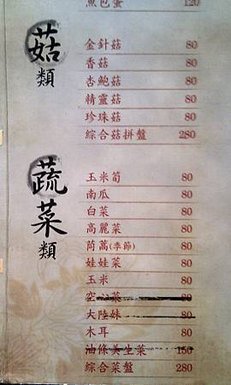 魚包蛋 120
菇類
金針菇 80
香菇 80
杏鮑菇 80
精靈菇 80
珍珠菇 80
綜合菇拼盤 280
蔬菜類
玉米筍 80
南瓜 80
白菜 80
高麗菜 80
茼萵(季節) 80
娃娃菜 80
玉米 80
空心菜 80
大陸妹 80
木耳 80
油條美生菜 150
綜合菜盤 280